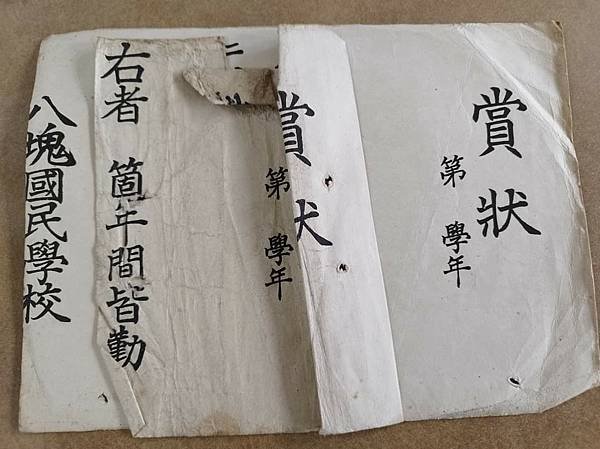 賞狀
第 學年
賞狀
第 學年
右者 箇年間皆勤
八塊國民學校